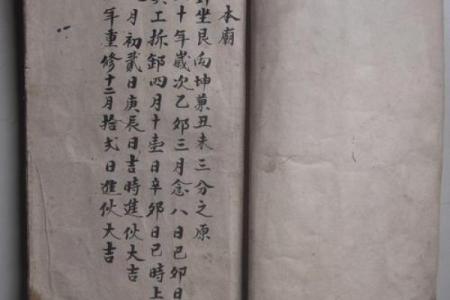 本廟
坐艮向坤兼丑未三分之原
十年歲次乙卯三月念八日己卯日
工拆卸四月十壹日辛卯日巳時上
月初貳日庚辰日吉時進伙大吉
年重修十二月拾弍日進伙大吉